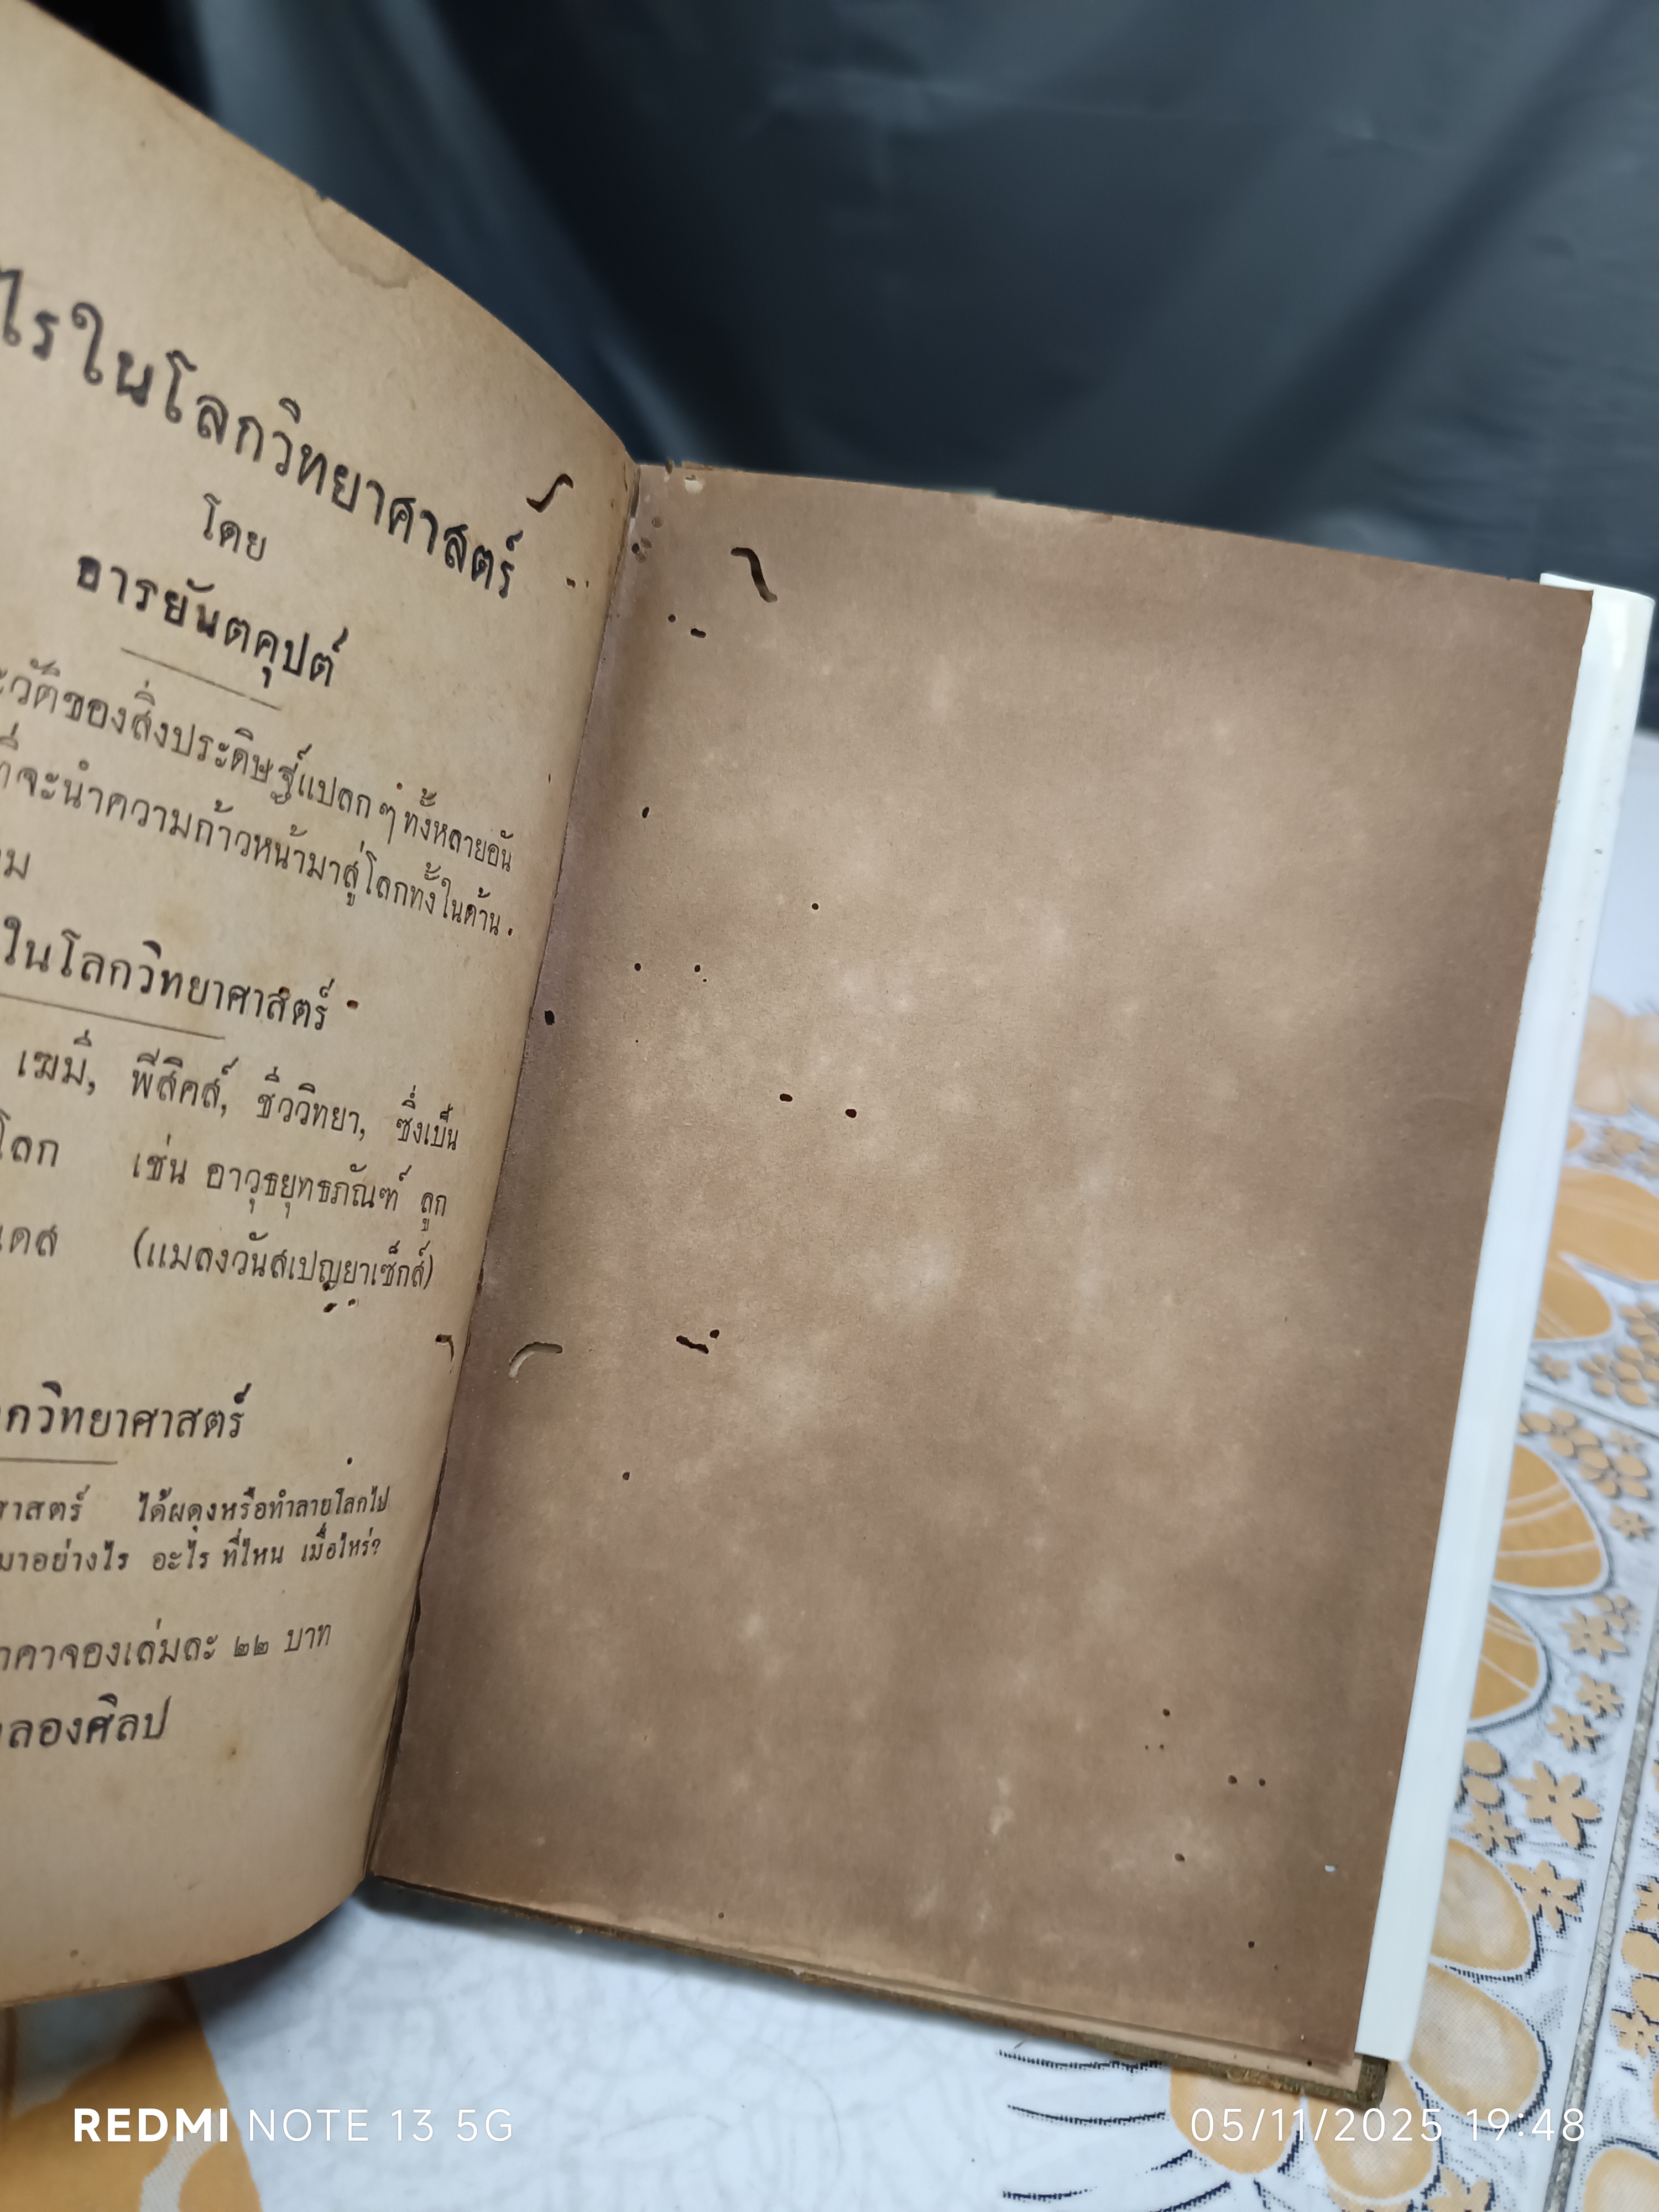 ไรในโลกวิทยาศาสตร์
โดย
อารยันตคุปต์
ะวัติของสิ่งประดิษฐ์แปลก ๆ ทั้งหลายอัน
ที่จะนำความก้าวหน้ามาสู่โลกทั้งในด้าน
ใม
ในโลกวิทยาศาสตร์
เฆมี, ฟีสิคส์, ชีววิทยา, ซึ่งเป็น
โลก เช่น อาวุธยุทธภัณฑ์ ลูก
แดส (แมลงวันสเปญยาเซ็กส์)
กวิทยาศาสตร์
ศาสตร์ ได้ผดุงหรือทำลายโลกไป
มาอย่างไร อะไร ที่ไหน เมื่อไหร่?
าคาจองเล่มละ ๒๒ บาท
ลองศิลป
REDMI NOTE 13 5G
05/11/2025 19:48